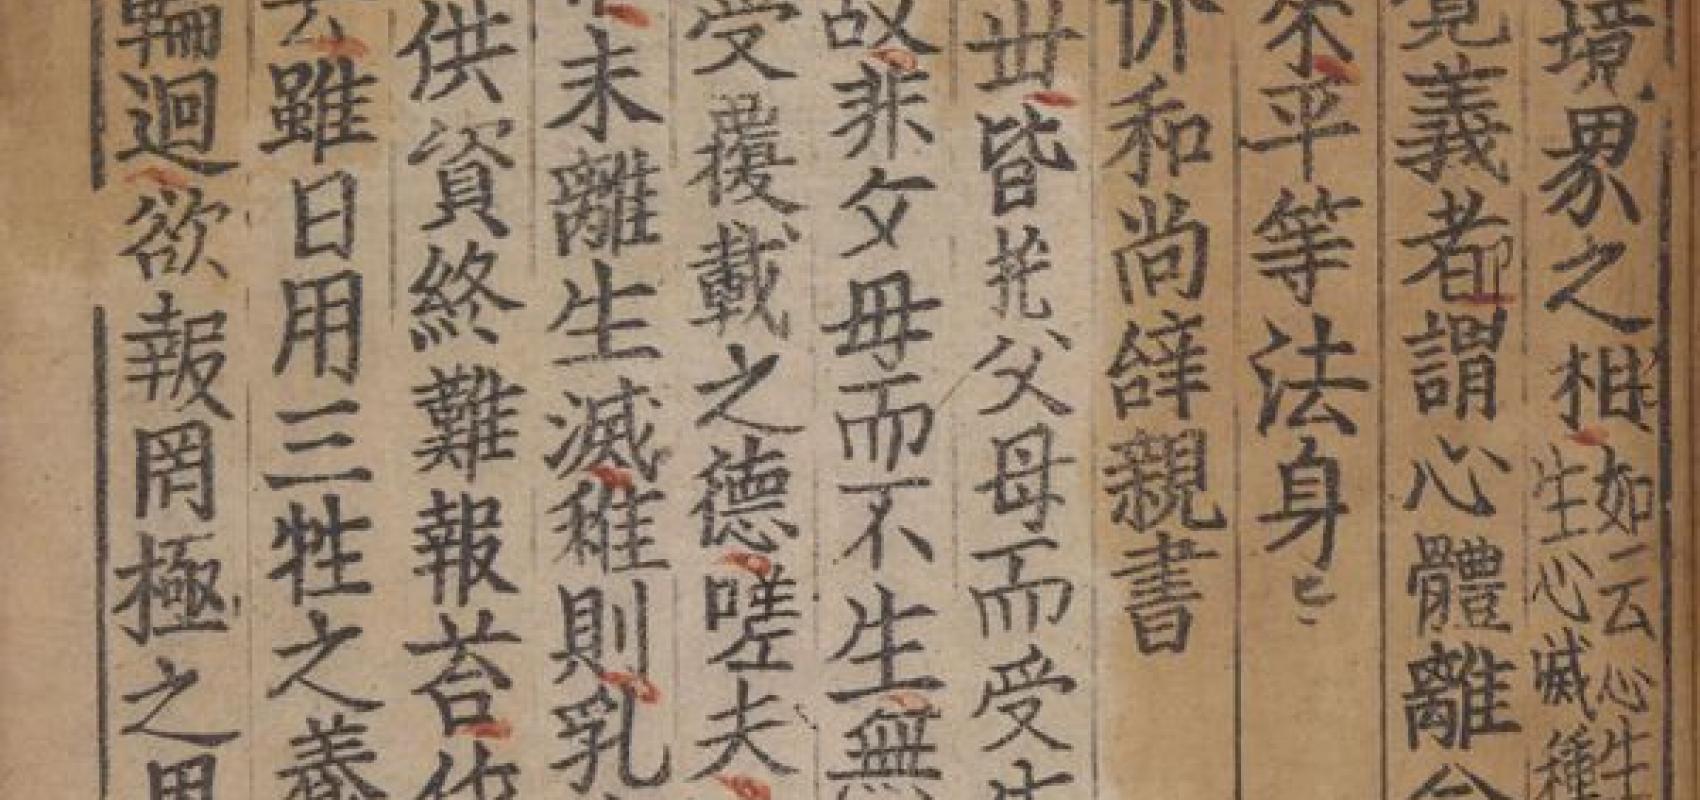 境界之相如云心生
生心滅種
覺義者謂心體離
來平等法身
价和尚辝親書
丗皆托父母而受生
故非父母而不生無
受覆載之德嗟夫
未離生滅稚則乳
供資終難報荅作
雖日用三牲之養
輪迴欲報罔極之恩